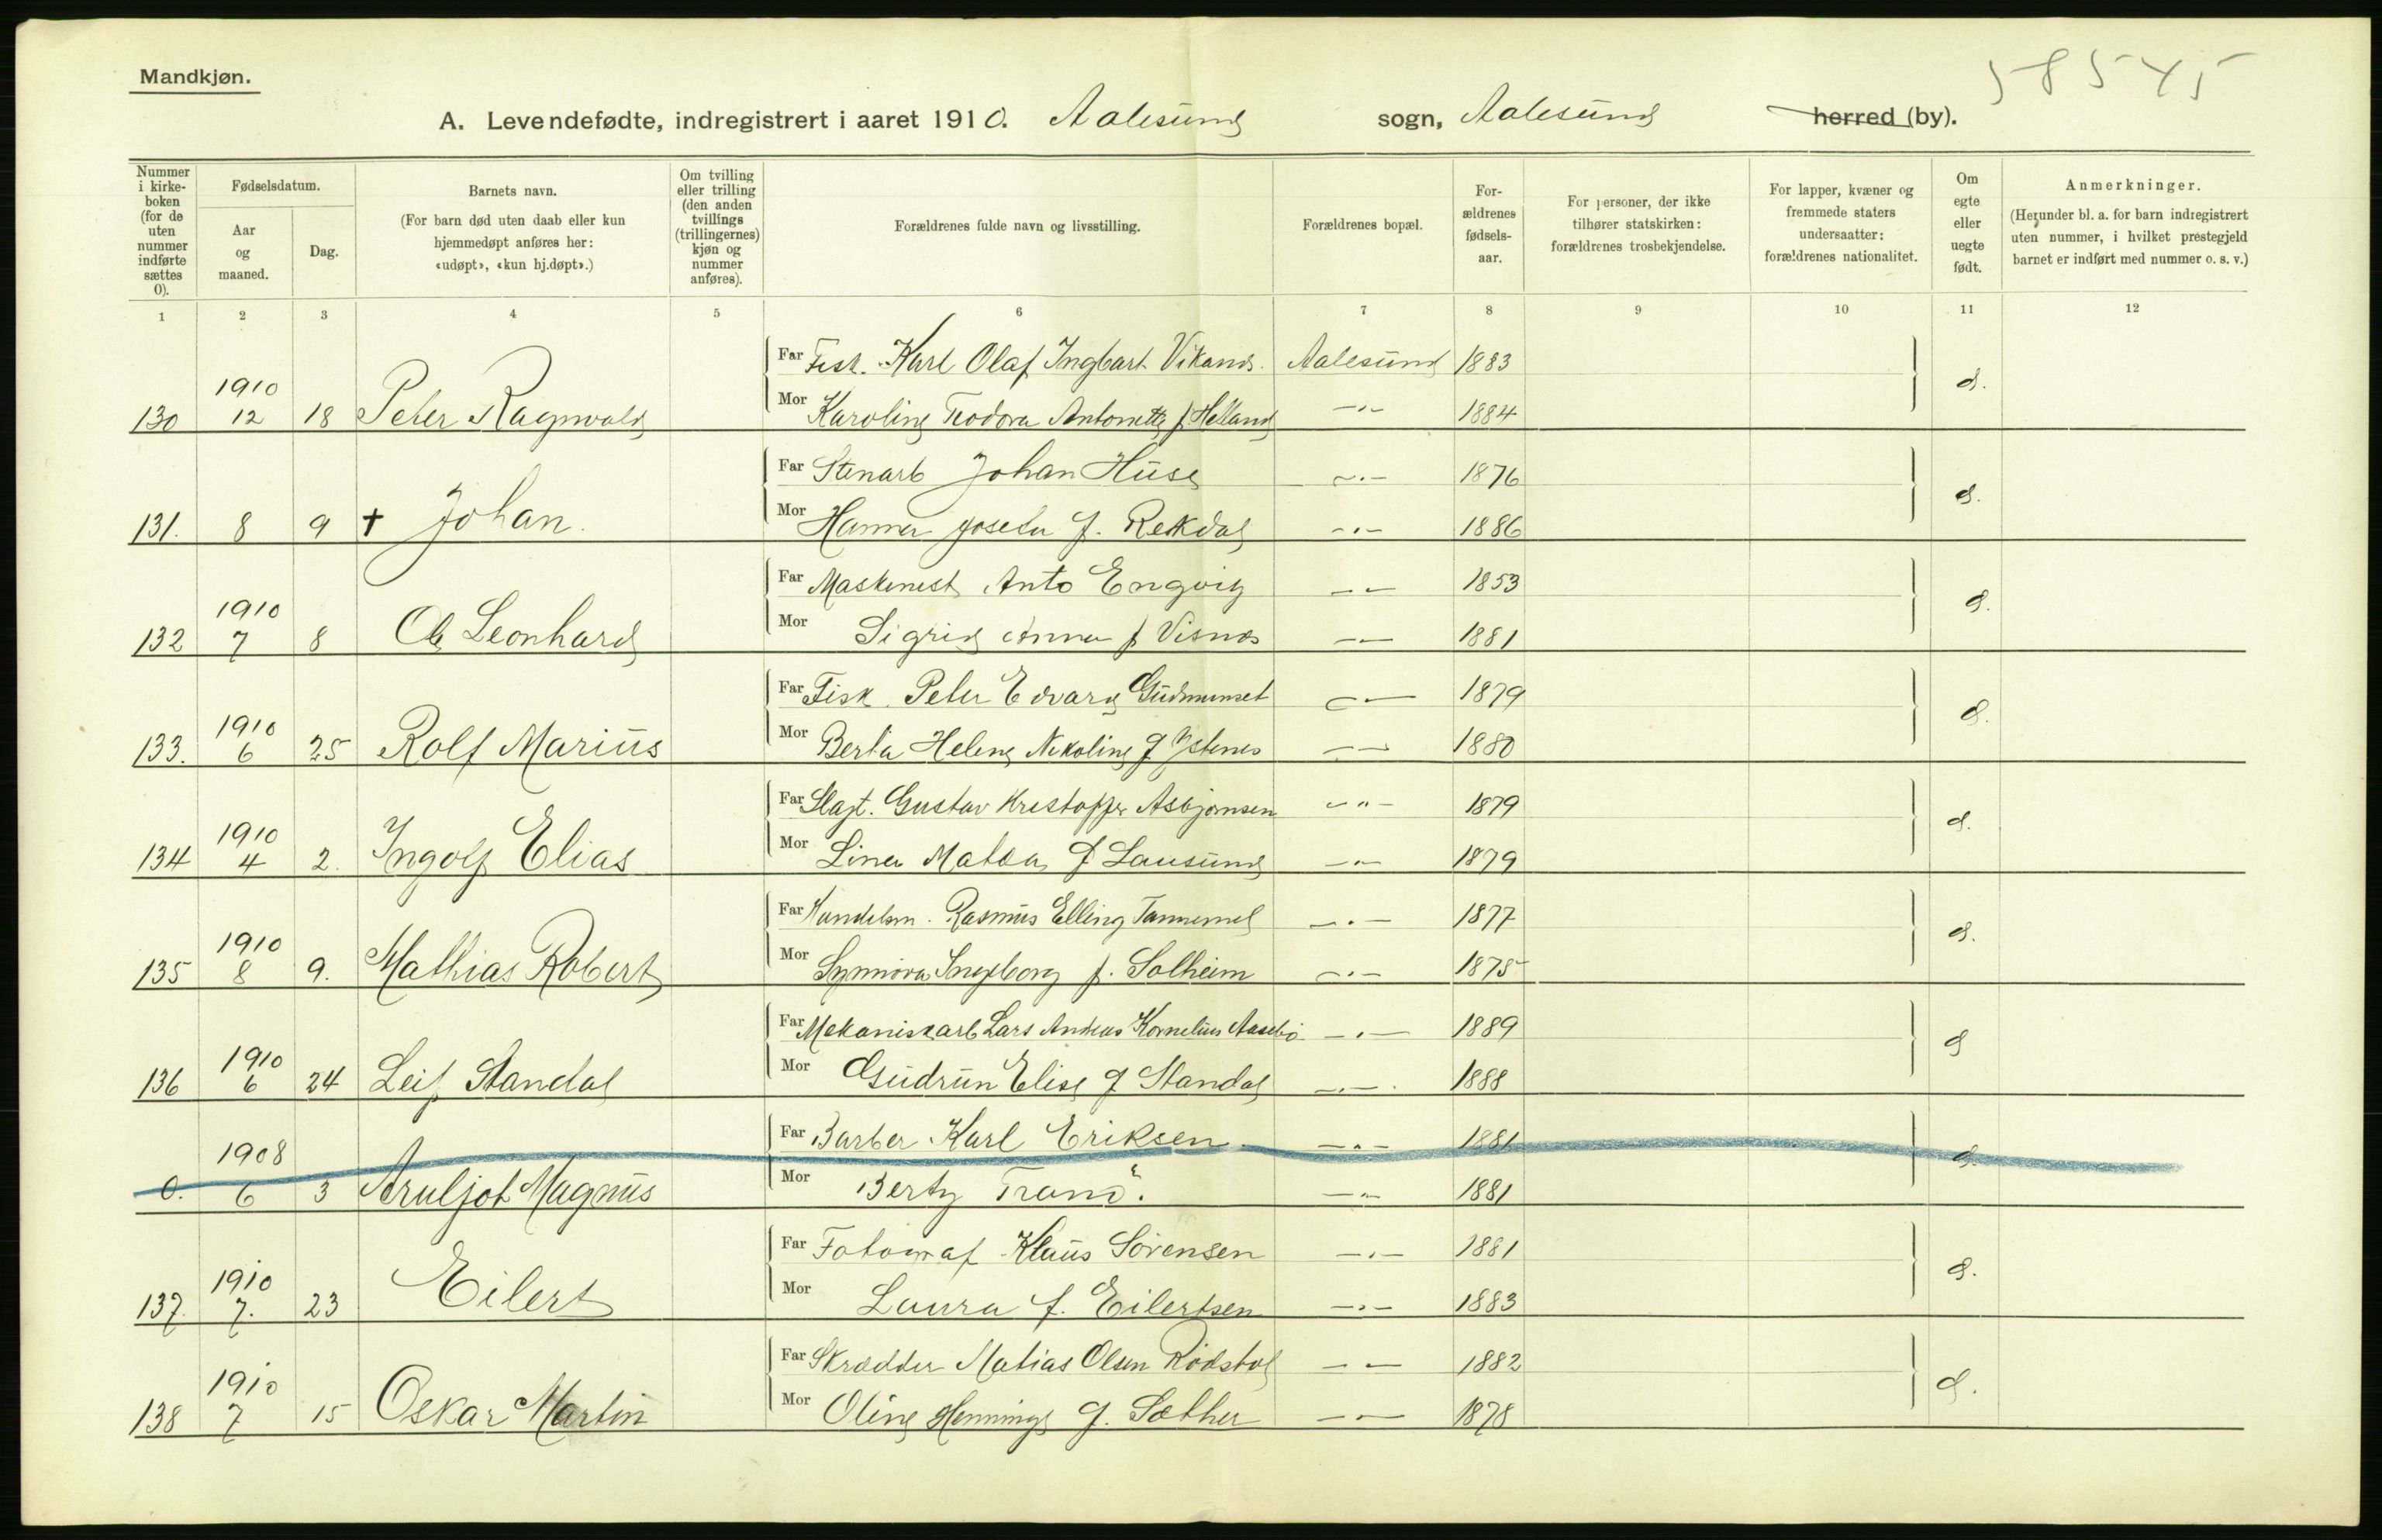 58545
Mandkjøn.
A. Levendefødte, indregistrert i aaret 1910. Aalesund sogn, Aalesund herred (by).
Nummer i kirke-boken (for de uten nummer indførte sættes 0).
Fødselsdatum.
Aar og maaned.
Dag.
Barnets navn.
(For barn død uten daab eller kun hjemmedøpt anføres her: «udøpt», «kun hj.døpt».)
Om tvilling eller trilling (den anden tvillings (trillingernes) kjøn og nummer anføres).
Forældrenes fulde navn og livsstilling.
Forældrenes bopæl.
For-ældrenes fødsels-aar.
For personer, der ikke tilhører statskirken: forældrenes trosbekjendelse.
For lapper, kvæner og fremmede staters undersaatter: forældrenes nationalitet.
Om egte eller uegte født.
Anmerkninger.
(Herunder bl. a. for barn indregistrert uten nummer, i hvilket prestegjeld barnet er indført med nummer o. s. v.)
1 2 3 4 5 6 7 8 9 10 11 12
Far Fisk. Karl Olaf Ingbart Vikand. Aalesund 1883
130 1910 12 18 Peter Ragnvald
Mor Karoline Teodora Antonette f. Helland —"— 1884
Far Stenarb Johan Huse —"— 1876
131. 8 9 + Johan.
Mor Hanna Josefa f. Rekdal —"— 1886
Far Maskinest Anto Engvig —"— 1853
132 1910 7 8 Ole Leonhard
Mor Sigrid Anna f Visnes —"— 1881
Far Fisk. Peter Edvard —"— 1879
133. 1910 6 25 Rolf Marius
Mor Berta Helene Nikoline f —"— 1880
Far Slagt. Gustav Kristoffer Asbjørnsen —"— 1879
134 1910 4 2. Ingolf Elias
Mor Lina Matea f Lausund —"— 1879
Far Handelsm. Rasmus Elling —"— 1877
135 1910 8 9. Mathias Robert
Mor Synnøva Ingeborg f. Solheim —"— 1875
Far Mekaniskarb Lars Andreas Kornelius Aasebø —"— 1889
136 1910 6 24 Leif Standal
Mor Gudrun Elise f Standal —"— 1888
Far Barber Karl Eriksen —"— 1881
0. 1908 6 3 Arnljot Magnus
Mor Berty —"— 1881
Far Fotograf Klaus Sörensen —"— 1881
137. 1910 7. 23 Eilert
Mor Laura f. Eilertsen —"— 1883
Far Skrædder Matias Olsen Rödstøl —"— 1882
138 1910 7 15 Oskar Martin
Mor Oline Henninge f. Sæther —"— 1878